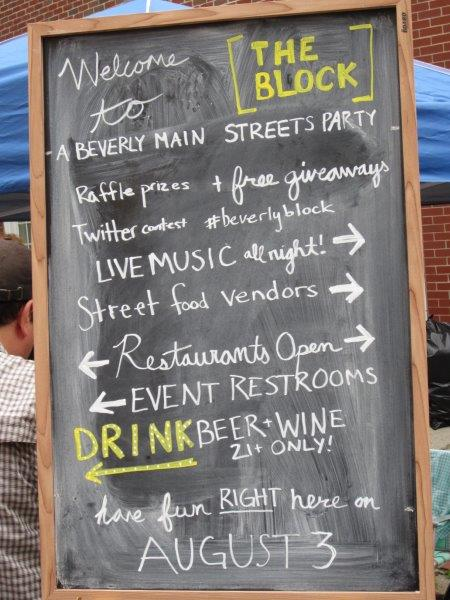 Welcome
to
[THE
BLOCK]
A BEVERLY MAIN STREETS PARTY
Raffle prizes + free giveaways
Twitter contest #beverlyblock
LIVE MUSIC all night! →
Street food vendors →
← Restaurants Open →
← EVENT RESTROOMS
DRINK BEER + WINE
21+ ONLY!
←
have fun RIGHT here on
AUGUST 3